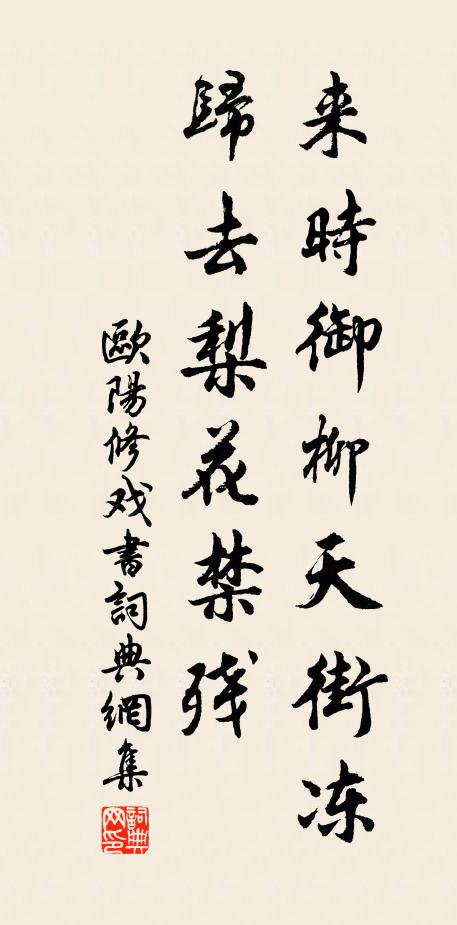 来時御柳天街冻
歸去梨花禁残
歐陽修戏書詞典網集
詞典网印